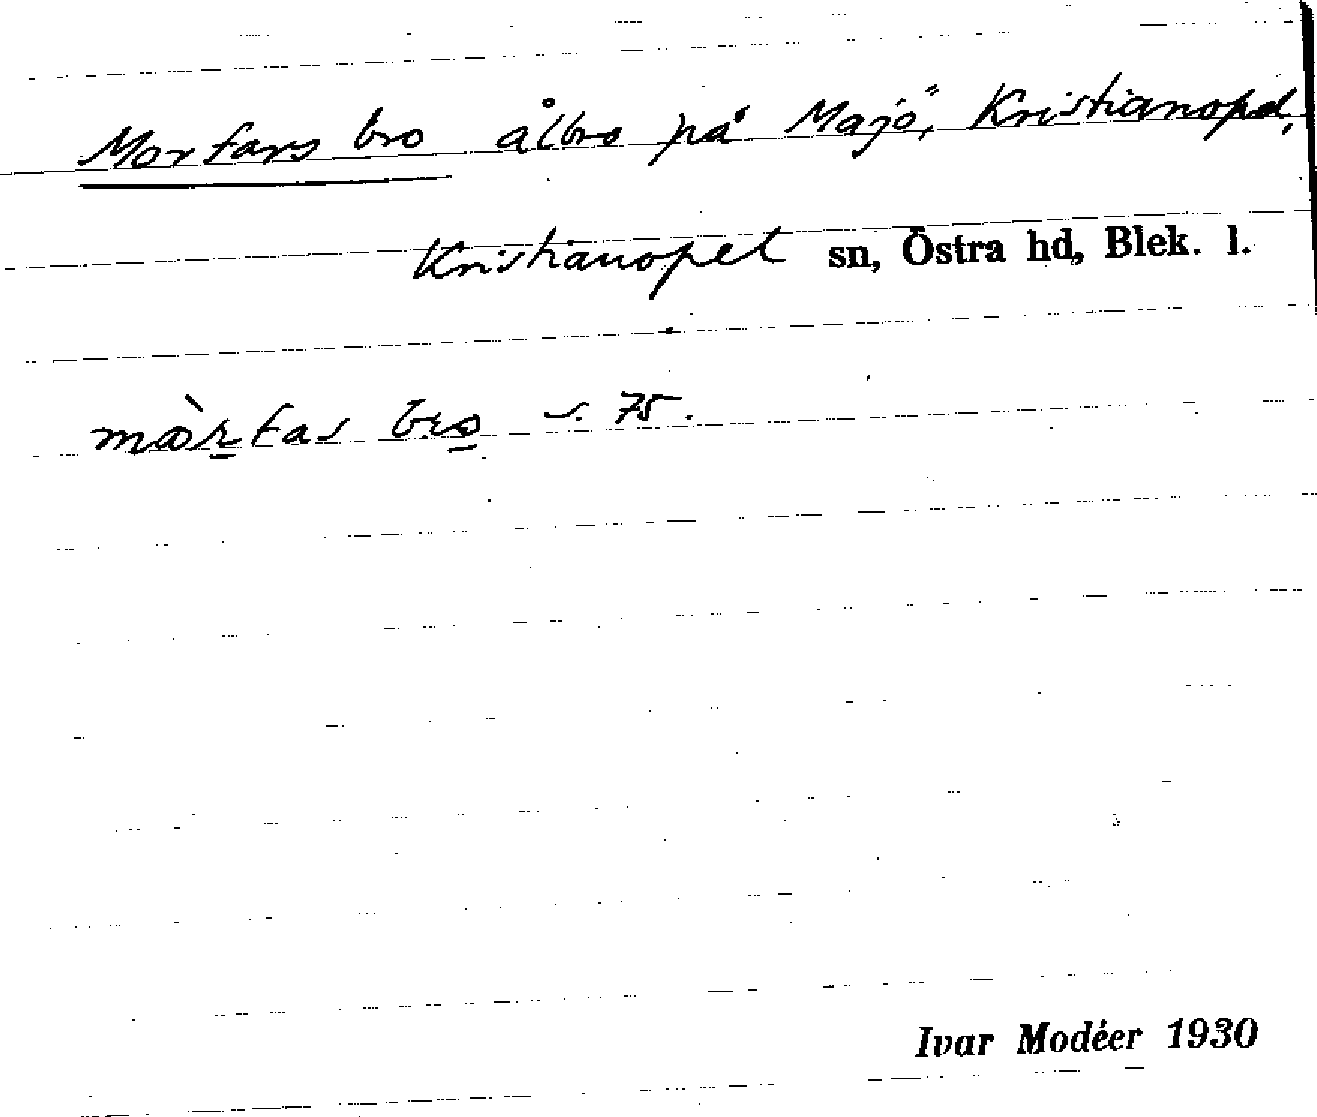 Morfars bro ålbro på Majö, Kristianopel,
Kristianopel sn, Östra hd, Blek. l.
bro s. 75.
Ivar Modéer 1930